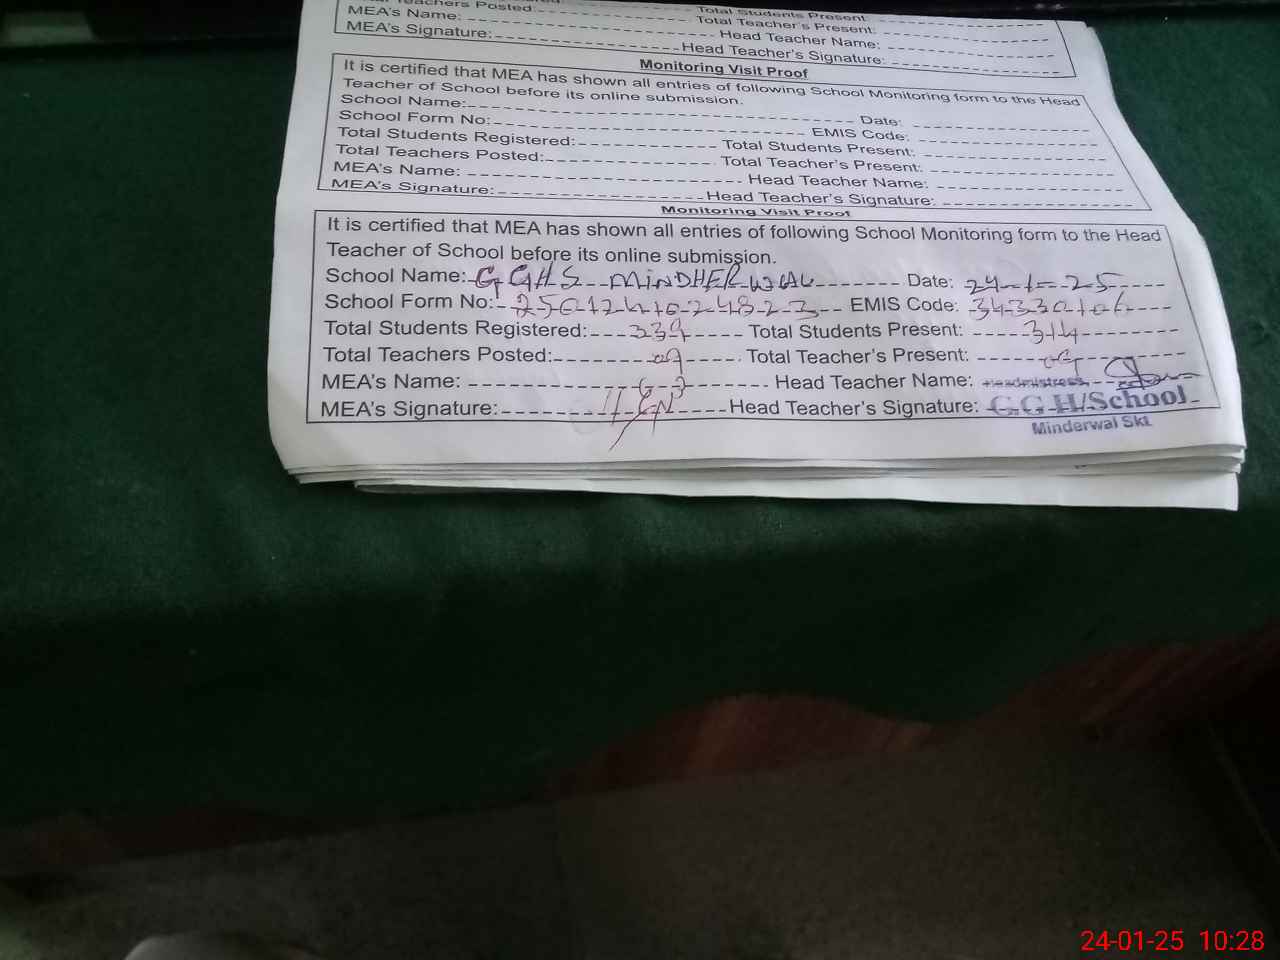 Teachers Posted: Total Students Present:
MEA's Name: Total Teacher's Present:
MEA's Signature: Head Teacher Name:
Head Teacher's Signature:
Monitoring Visit Proof
It is certified that MEA has shown all entries of following School Monitoring form to the Head
Teacher of School before its online submission.
School Name: Date:
School Form No: EMIS Code:
Total Students Registered: Total Students Present:
Total Teachers Posted: Total Teacher's Present:
MEA's Name: Head Teacher Name:
MEA's Signature: Head Teacher's Signature:
Monitoring Visit Proof
It is certified that MEA has shown all entries of following School Monitoring form to the Head
Teacher of School before its online submission.
School Name: GGHS MINDHERWAL Date: 24-1-25
School Form No: 2501241024823 EMIS Code: 34330106
Total Students Registered: 339 Total Students Present: 314
Total Teachers Posted: 09 Total Teacher's Present: 09
MEA's Name: Head Teacher Name: Headmistress
MEA's Signature: Head Teacher's Signature: G.G.H/School
Minderwal Skt.
24-01-25 10:28